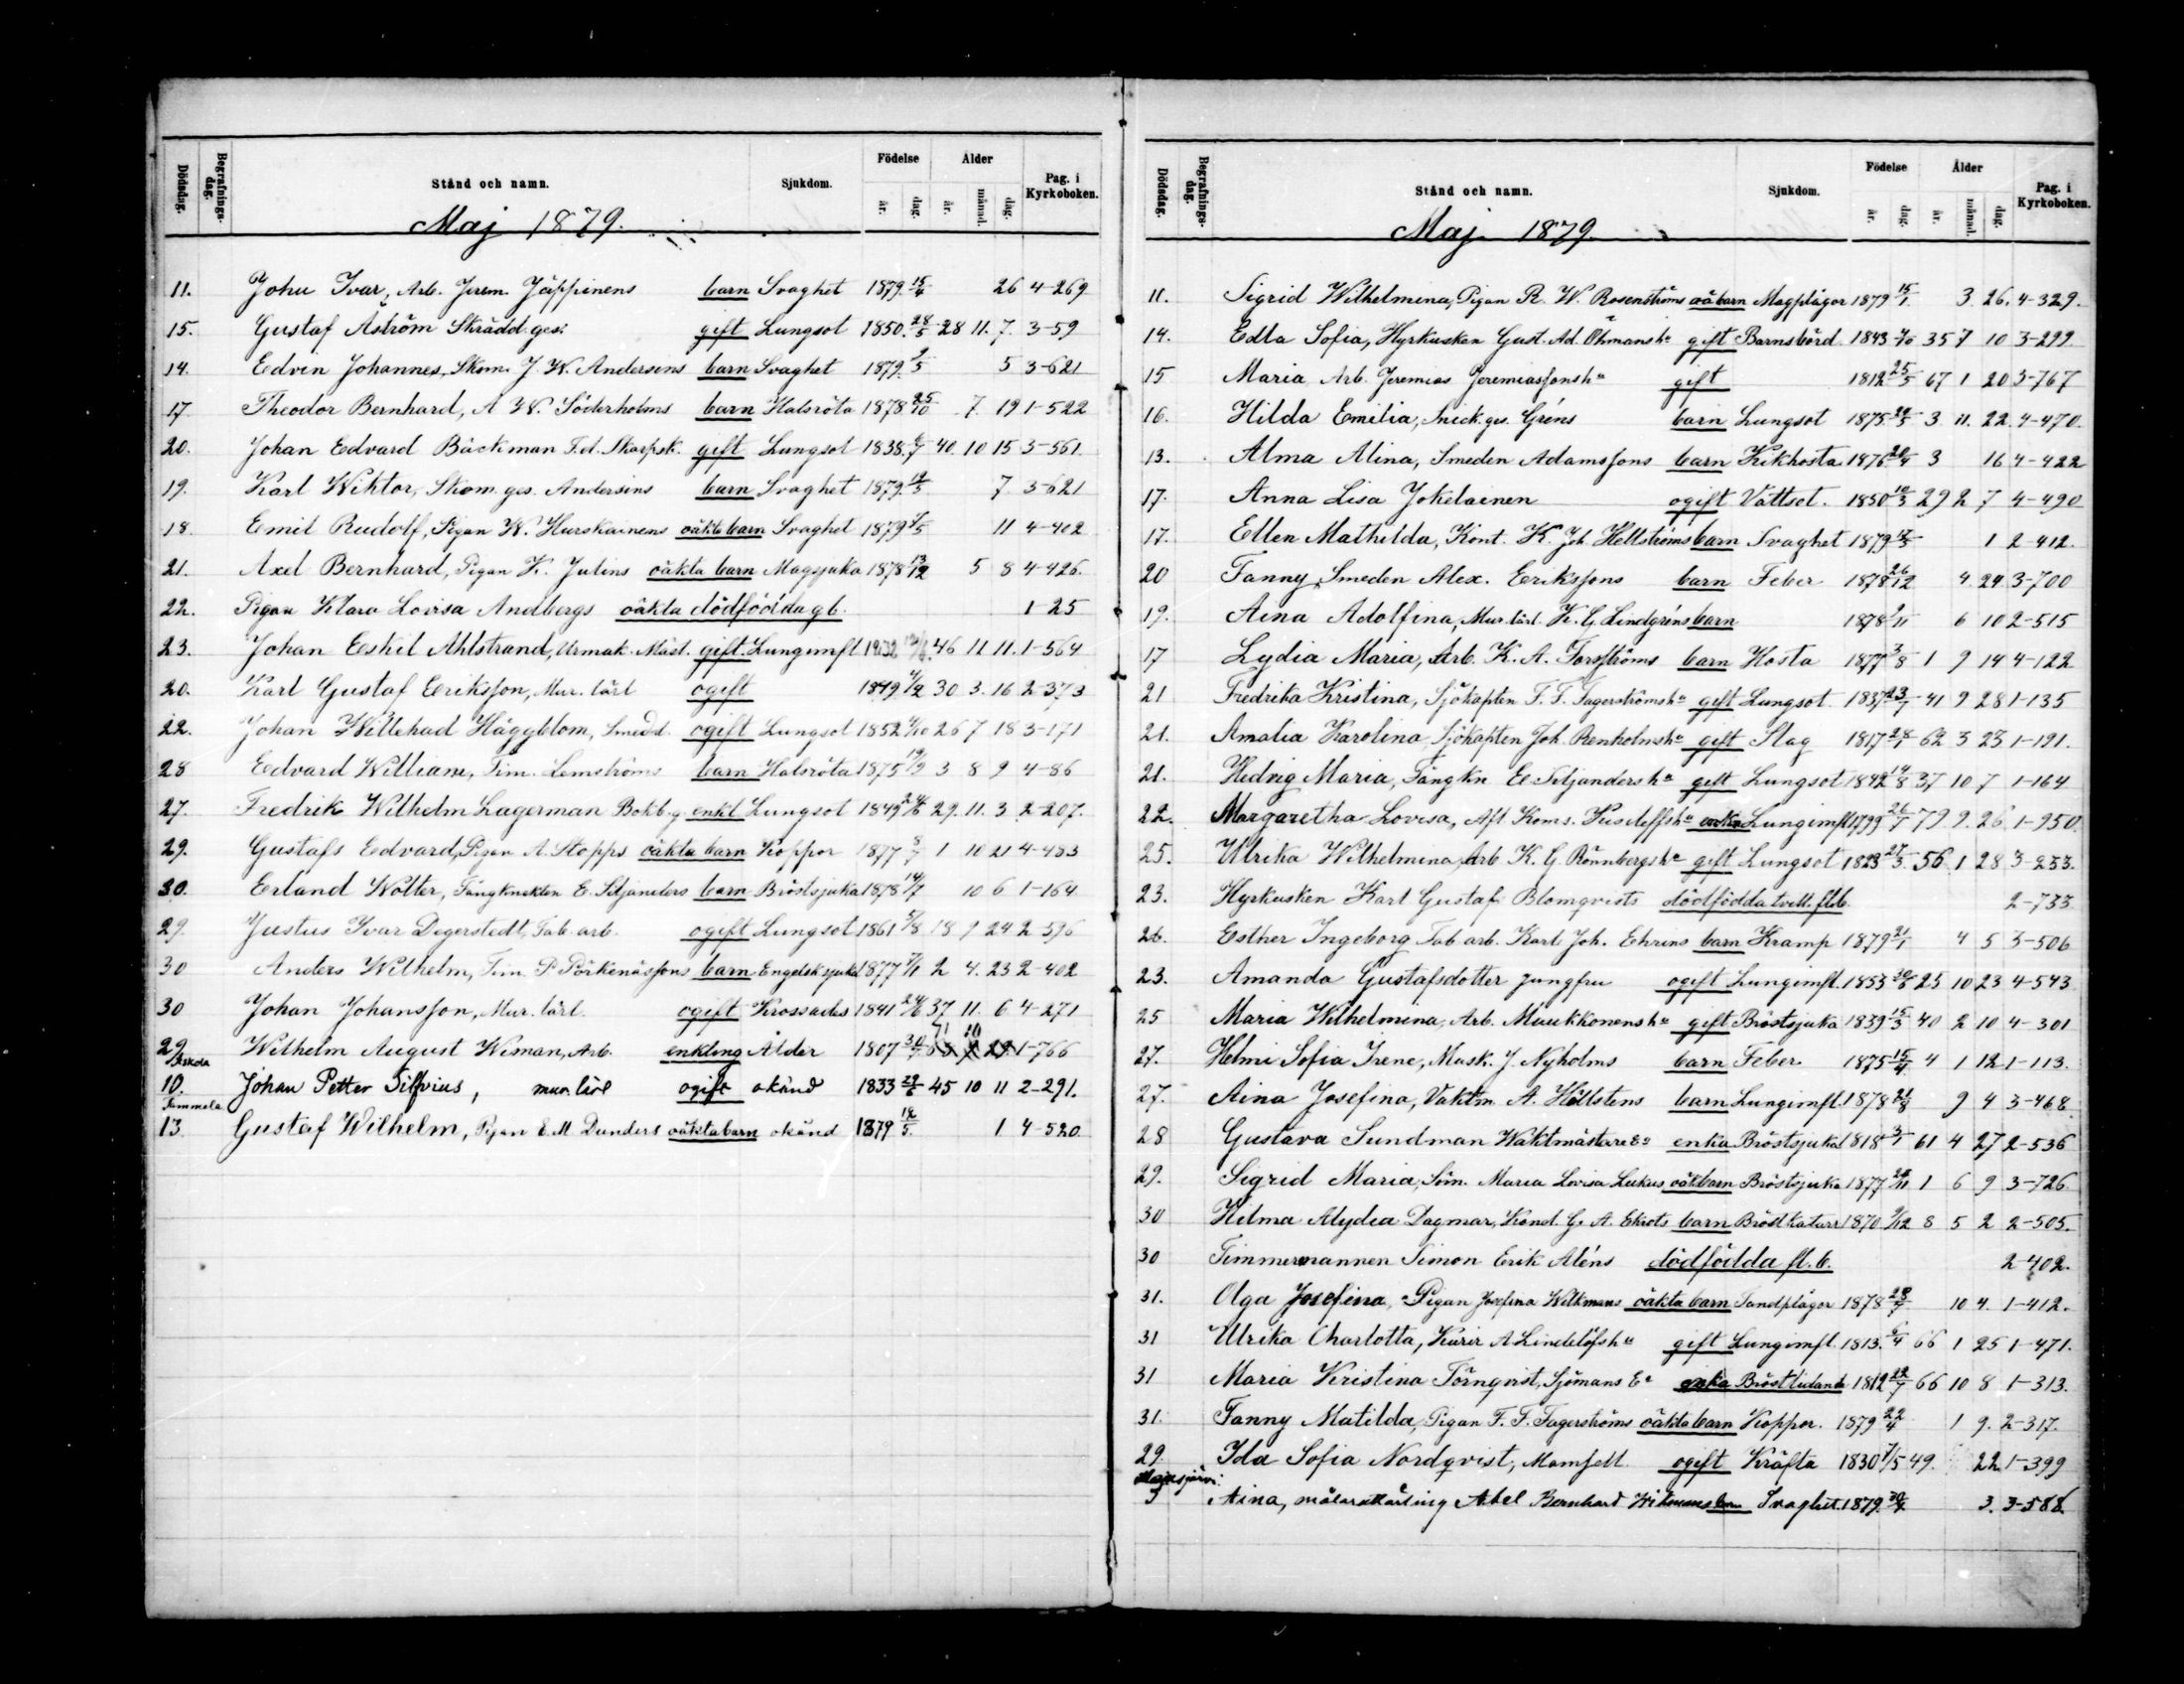 Dödsdag. Begrafnings-dag. Stånd och namn. Sjukdom. Födelse år. dag. Ålder år. månad. dag. Pag. i Kyrkoboken.
Maj 1879.
11. Johu Ivar, Arb. Jerem. Jäppinens barn Svaghet 1879 15/4 26 4-269
15. Gustaf Åström Skrädd. ges. gift Lungsot 1850 28/5 28 11. 7. 3-59
14. Edvin Johannes, Skom. J. W. Andersins barn Svaghet 1879 9/5 5 3-621
17 Theodor Bernhard, A W. Söderholms barn Halsröta 1878 25/10 7. 19 1-522
20. Johan Edvard Bäckman F.d. Skarpsk. gift Lungsot 1838 6/7 40. 10 15 3-561
19. Karl Wiktor, Skom. ges. Andersins barn Svaghet 1879 12/5 7. 3-621
18. Emil Rudolf, Pigan W. Hurskainens oäkta barn Svaghet 1879 7/5 11 4-402
21. Axel Bernhard, Pigan K. Julins oäkta barn Magsjuka 1878 13/12 5 8 4-426.
22. Pigan Klara Lovisa Andbergs oäkta dödfödda g b. 1-25
23. Johan Eskil Ahlstrand, Urmak. Mäst. gift. Lunginfl. 1832 46 11 11. 1-564
20. Karl Gustaf Eriksson, Mur. lärl ogift 1849 4/2 30 3. 16 2-373
22. Johan Willehad Häggblom, Smedd. ogift Lungsot 1852 4/10 26 7 18 3-171
28 Edvard William, Tim. Lemströms barn Halsröta 1875 19/9 3 8 9 4-86
27. Fredrik Wilhelm Lagerman Bokb. g. enkl Lungsot 1849 24/6 29. 11. 3. 2-207.
29. Gustafs Edvard, Pigan A. Stopps oäkta barn Koppor 1877 8/7 1 10 21 4-483
30. Erland Wolter, Fångknekten E. Siljanders barn Bröstsjuka 1878 14/7 10 6 1-164
29. Justus Ivar Degerstedt, Fab. arb. ogift Lungsot 1861 5/8 18 9 24 2-396
30 Anders Wilhelm, Tim. P Pörkenässons barn Engelsk sjuka 1877 7/1 2 4. 23 2-402
30 Johan Johansson, Mur. lärl. ogift Krossades 1841 24/6 37 11. 6 4-271
29. Wilhelm August Wiman, Arb. enkling Ålder 1807 30/7 71 10 29 1-766
Askola
10. Johan Petter Silfvius, mur. lärl ogift okänd 1833 29/6 45 10 11 2-291.
Tammela
13. Gustaf Wilhelm, Pigan E. M Dunders oäkta barn okänd 1879 12/5. 1 4-520
Dödsdag. Begrafnings-dag. Stånd och namn. Sjukdom. Födelse år. dag. Ålder år. månad. dag. Pag. i Kyrkoboken.
Maj 1879.
11. Sigrid Wilhelmina, Pigan R. W. Rosenströms oä barn Magplågor 1879 15/1. 3 26. 4-329.
14. Edla Sofia, Hyrkusken Gust. Ad. Öhmans hu gift Barnsbörd 1843 4/10 35 7 10 3-299
15 Maria Arb. Jeremias Jeremiassons hu gift 1812 25/3 67 1 20 3-767
16. Hilda Emilia, Snick. ges. Gréns barn Lungsot 1875 24/5 3 11. 22. 4-470.
13. Alma Alina, Smeden Adamssons barn Kikhosta 1876 28/4 3 16 4-422
17. Anna Lisa Jokelainen ogift Vattsot. 1850 10/3 29 2 7 4-490
17. Ellen Mathilda, Kont. K. Joh. Hellströms barn Svaghet 1879 16/5 1 2-412.
20 Fanny, Smeden Alex. Erikssons barn Feber 1878 26/12 4. 24 3-700
19. Aina Adolfina, Mur. lärl. K. G. Lindgréns barn 1878 9/11 6 10 2-515
17 Lydia Maria, Arb. K. A. Forsströms barn Hosta 1877 3/8 1 9 14 4-122
21 Fredrika Kristina, Sjökapten F. F. Fagerströms hu gift Lungsot 1837 23/7 41 9 28 1-135
21. Amalia Karolina, Sjökapten Joh. Renholms hu gift Slag 1817 28/1 62 3 23 1-191.
21. Hedvig Maria, Fångkn E Siljanders hu gift Lungsot 1842 14/8 37 10 7 1-164
22. Margaretha Lovisa, Afl. Koms. hu enka Lunginfl 1799 26/7 79 9. 26 1-950
25. Ulrika Wilhelmina, Arb K. G. Rönnbergs hu gift Lungsot 1823 27/3 56 1 28 3-233.
23. Hyrkusken Karl Gustaf Blomqvists dödfödda tvill. fl.b. 2-733
26. Esther Ingeborg Fab arb. Karl Joh. Ehrins barn Kramp 1879 21/1 4 5 3-506
23. Amanda Gustafsdotter Jungfru ogift Lunginfl. 1853 30/6 25 10 23 4-543
25 Maria Wilhelmina, Arb. Muukkonens hu gift Bröstsjuka 1839 15/3 40 2 10 4-301
27. Helmi Sofia Irene, Mask. J. Nyholms barn Feber 1875 15/4 4 1 12 1-113.
27. Aina Josefina, Vaktm. A. Hällstens barn Lunginfl. 1878 21/8 9 4 3-468
28 Gustava Sundman Waktmästare Ea enka Bröstsjuka 1818 3/1 61 4 27 2-536
29. Sigrid Maria, Söm. Maria Lovisa Lukus oäk barn Bröstsjuka 1877 20/11 1 6 9 3-726
30 Hilma Alydia Dagmar, Kond. G. A. Ekrots barn Bröstkatarr 1870 9/12 8 5 2 2-505.
30 Timmermannen Simon Erik Aléns dödfödda fl. b. 2-402.
31. Olga Josefina, Pigan Josefina Wilkmans oäkta barn Tandplågor 1878 28/7 10 4. 1-412.
31 Ulrika Charlotta, Kurir A Lindelöfs hu gift Lunginfl. 1813. 6/4 66 1 25 1-471.
31 Maria Kristina Törnqvist, Sjömans Ea enka Bröstlidande 1812 22/7 66 10 8 1-313.
31. Fanny Matilda, Pigan F. F. Fagerströms oäkta barn Koppor. 1879 22/4 1 9. 2-317.
29. Ida Sofia Nordqvist, Mamsell ogift Kräfta 1830 7/5 49. 22. 1-399
3 Aina, målarelärling Abel Bernhard Wikmans barn Svaghet. 1879. 30/4 3. 3-588.